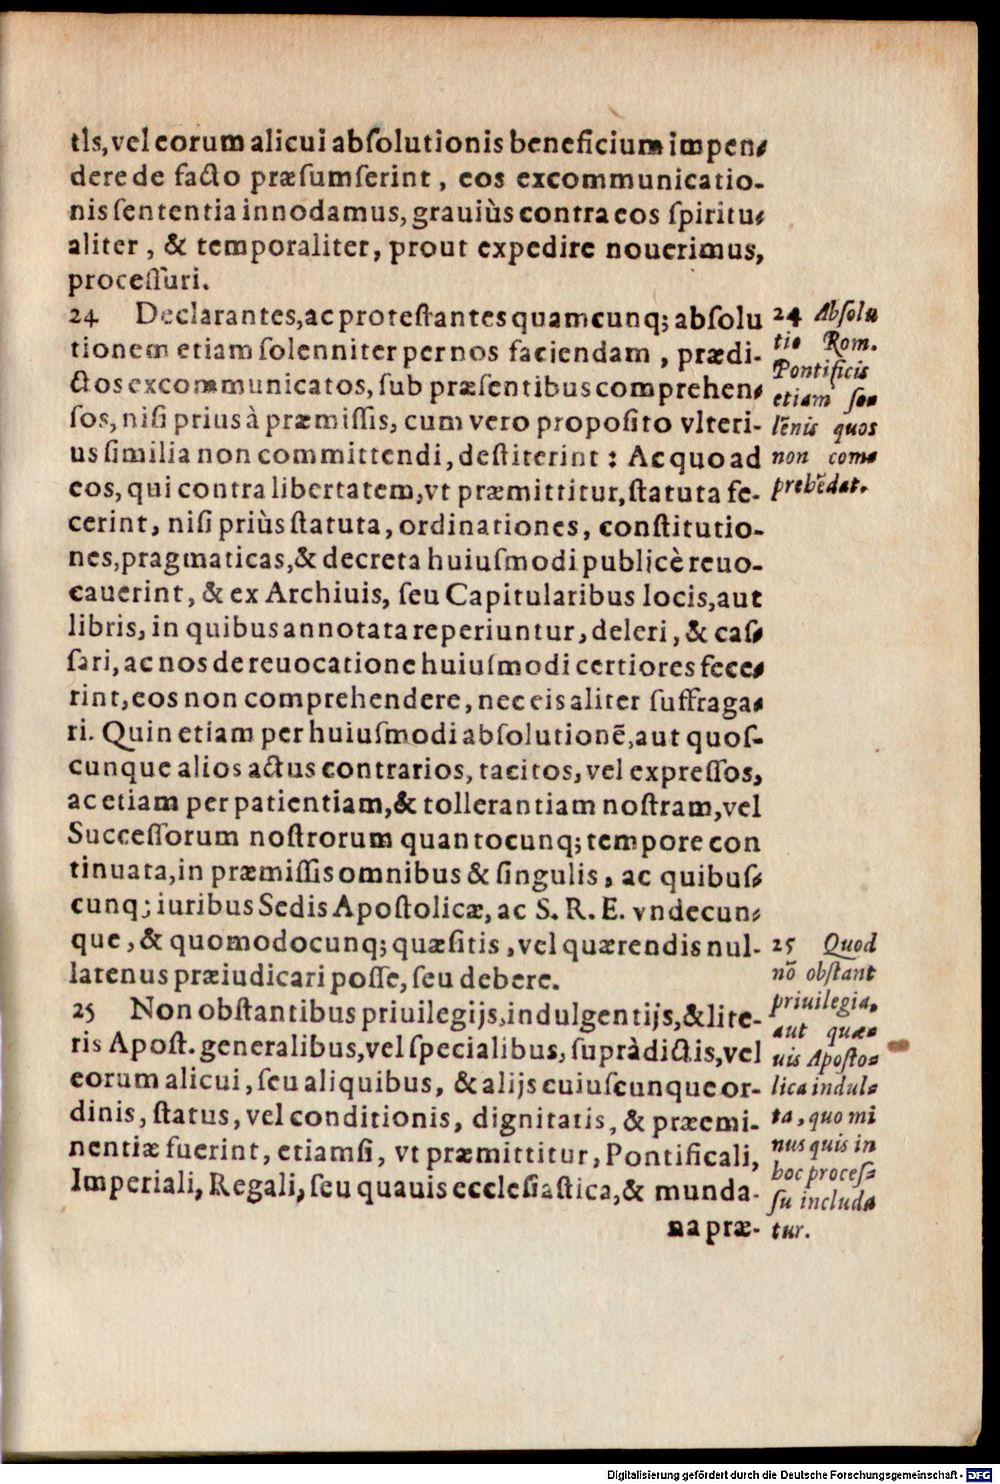 tIs, vel eorum alicui absolutionis beneficium impen-
dere de facto præsumserint, eos excommunicatio-
nis sententia innodamus, grauiùs contra eos spiritu-
aliter, & temporaliter, prout expedire nouerimus,
processuri.
24 Declarantes, ac protestantes quamcunq; absolu
tionem etiam solenniter per nos faciendam, prædi-
ctos excommunicatos, sub præsentibus comprehen-
sos, nisi prius à præmissis, cum vero proposito vlteri-
us similia non committendi, destiterint: Ac quo ad
eos, qui contra libertatem, vt præmittitur, statuta fe-
cerint, nisi priùs statuta, ordinationes, constitutio-
nes, pragmaticas, & decreta huiusmodi publicè reuo-
cauerint, & ex Archiuis, seu Capitularibus locis, aut
libris, in quibus annotata reperiuntur, deleri, & cas-
sari, ac nos de reuocatione huiusmodi certiores fece-
rint, eos non comprehendere, nec eis aliter suffraga-
ri. Quin etiam per huiusmodi absolutionē, aut quos-
cunque alios actus contrarios, tacitos, vel expressos,
ac etiam per patientiam, & tollerantiam nostram, vel
Successorum nostrorum quantocunq; tempore con
tinuata, in præmissis omnibus & singulis, ac quibus-
cunq; iuribus Sedis Apostolicæ, ac S. R. E. vndecun-
que, & quomodocunq; quæsitis, vel quærendis nul-
latenus præiudicari posse, seu debere.
25 Non obstantibus priuilegijs, indulgentijs, & lite-
ris Apost. generalibus, vel specialibus, supràdictis, vel
eorum alicui, seu aliquibus, & alijs cuiuscunque or-
dinis, status, vel conditionis, dignitatis, & præemi-
nentiæ fuerint, etiamsi, vt præmittitur, Pontificali,
Imperiali, Regali, seu quauis ecclesiastica, & munda-
na præ-
24 Absolu
tio Rom.
Pontificis
etiam so-
lēnis quos
non com-
prehēdat.
25 Quod
nō obstant
priuilegia,
aut quæ-
uis Aposto-
lica indul-
ta, quo mi
nus quis in
hoc proces-
su includa
tur.
Digitalisierung gefördert durch die Deutsche Forschungsgemeinschaft - DFG